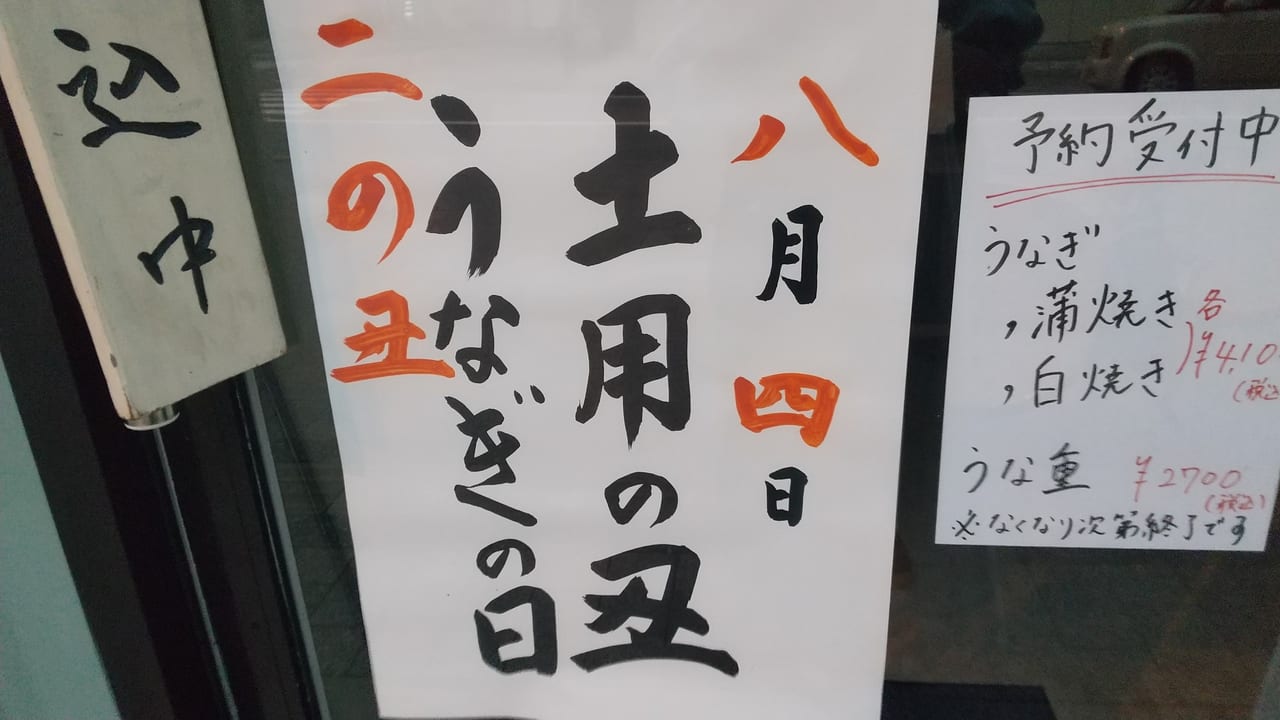 込中
八月四日
土用の丑
うなぎの日
二の丑
予約受付中
うなぎ
,蒲焼き
,白焼き
各
¥4,10
(税込
うな重 ¥2700
(税込)
※なくなり次第終了です